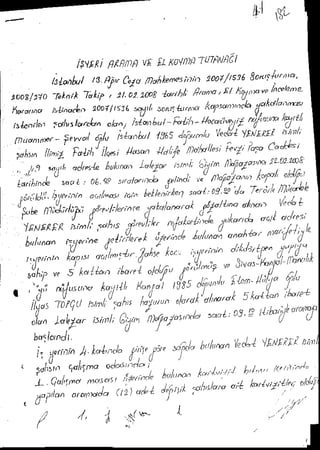 182
İŞYERİ ARAMA VE EL KOYMA TUTANAĞI
İstanbul 13. Ağır Ceza Mahkemesinin 2007/1536 Soruşturma,
2008/270 Teknik Takip, 21.02.2008 tarihli Arama, El Koyma ve İnceleme
Kararına istinaden 2007/1536 sayılı soruşturma kapsamında yakalanması
istenilen şahıslardan olan, İstanbul-Fatih- nüfusuna kayıtlı
Muammer- Şevval oğlu İstanbul 1965 doğumlu Vedat YENERER isimli
şahsın İlimiz Fatih İlçesi Hasan Halife Mahallesi Fevzi Paşa Caddesi
sayılı adreste bulunan Lalezar isimli Giyim Mağazasına 22.02.2008
tarihinde saat: sıralarında gelindi ve Mağazanın kapalı olduğu
görüldü. İşyerinin açılması için beklenirken saat: da Terörle Mücadele
Şube Müdürlüğü görevlilerince yakalanarak gözaltına alınan Vedat
YENERER isimli şahıs görevliler refakatinde yukarıda açık adresi
bulunan işyerine getirilerek üzerinde bulunan anahtar marifetiyle
işyerinin kapısı açılmıştır. işyerinin dikdörtgen yapıya
sahip ve 5 kattan ibaret olduğu görülmüş ve Sivas-Kangal-
nüfusuna kayıtlı Kangal 1985 doğumlu oğlu
İlyas TOPÇU isimli şahıs hazurun olarak alınarak 5 kattan ibaret
olan Lalezar isimli Giyim Mağazasında saat: itibariyle aramaya
başlandı.
İş yerinin 4. katında girişe göre sağda bulunan Vedat YENERER isimli
şahsın çalışma odasında;
1. Çalışma masası üzerinde bulunan kartvizit içerisinde
yapılan aramada (12) adet değişik şahıslara ait kartvizitler olduğu